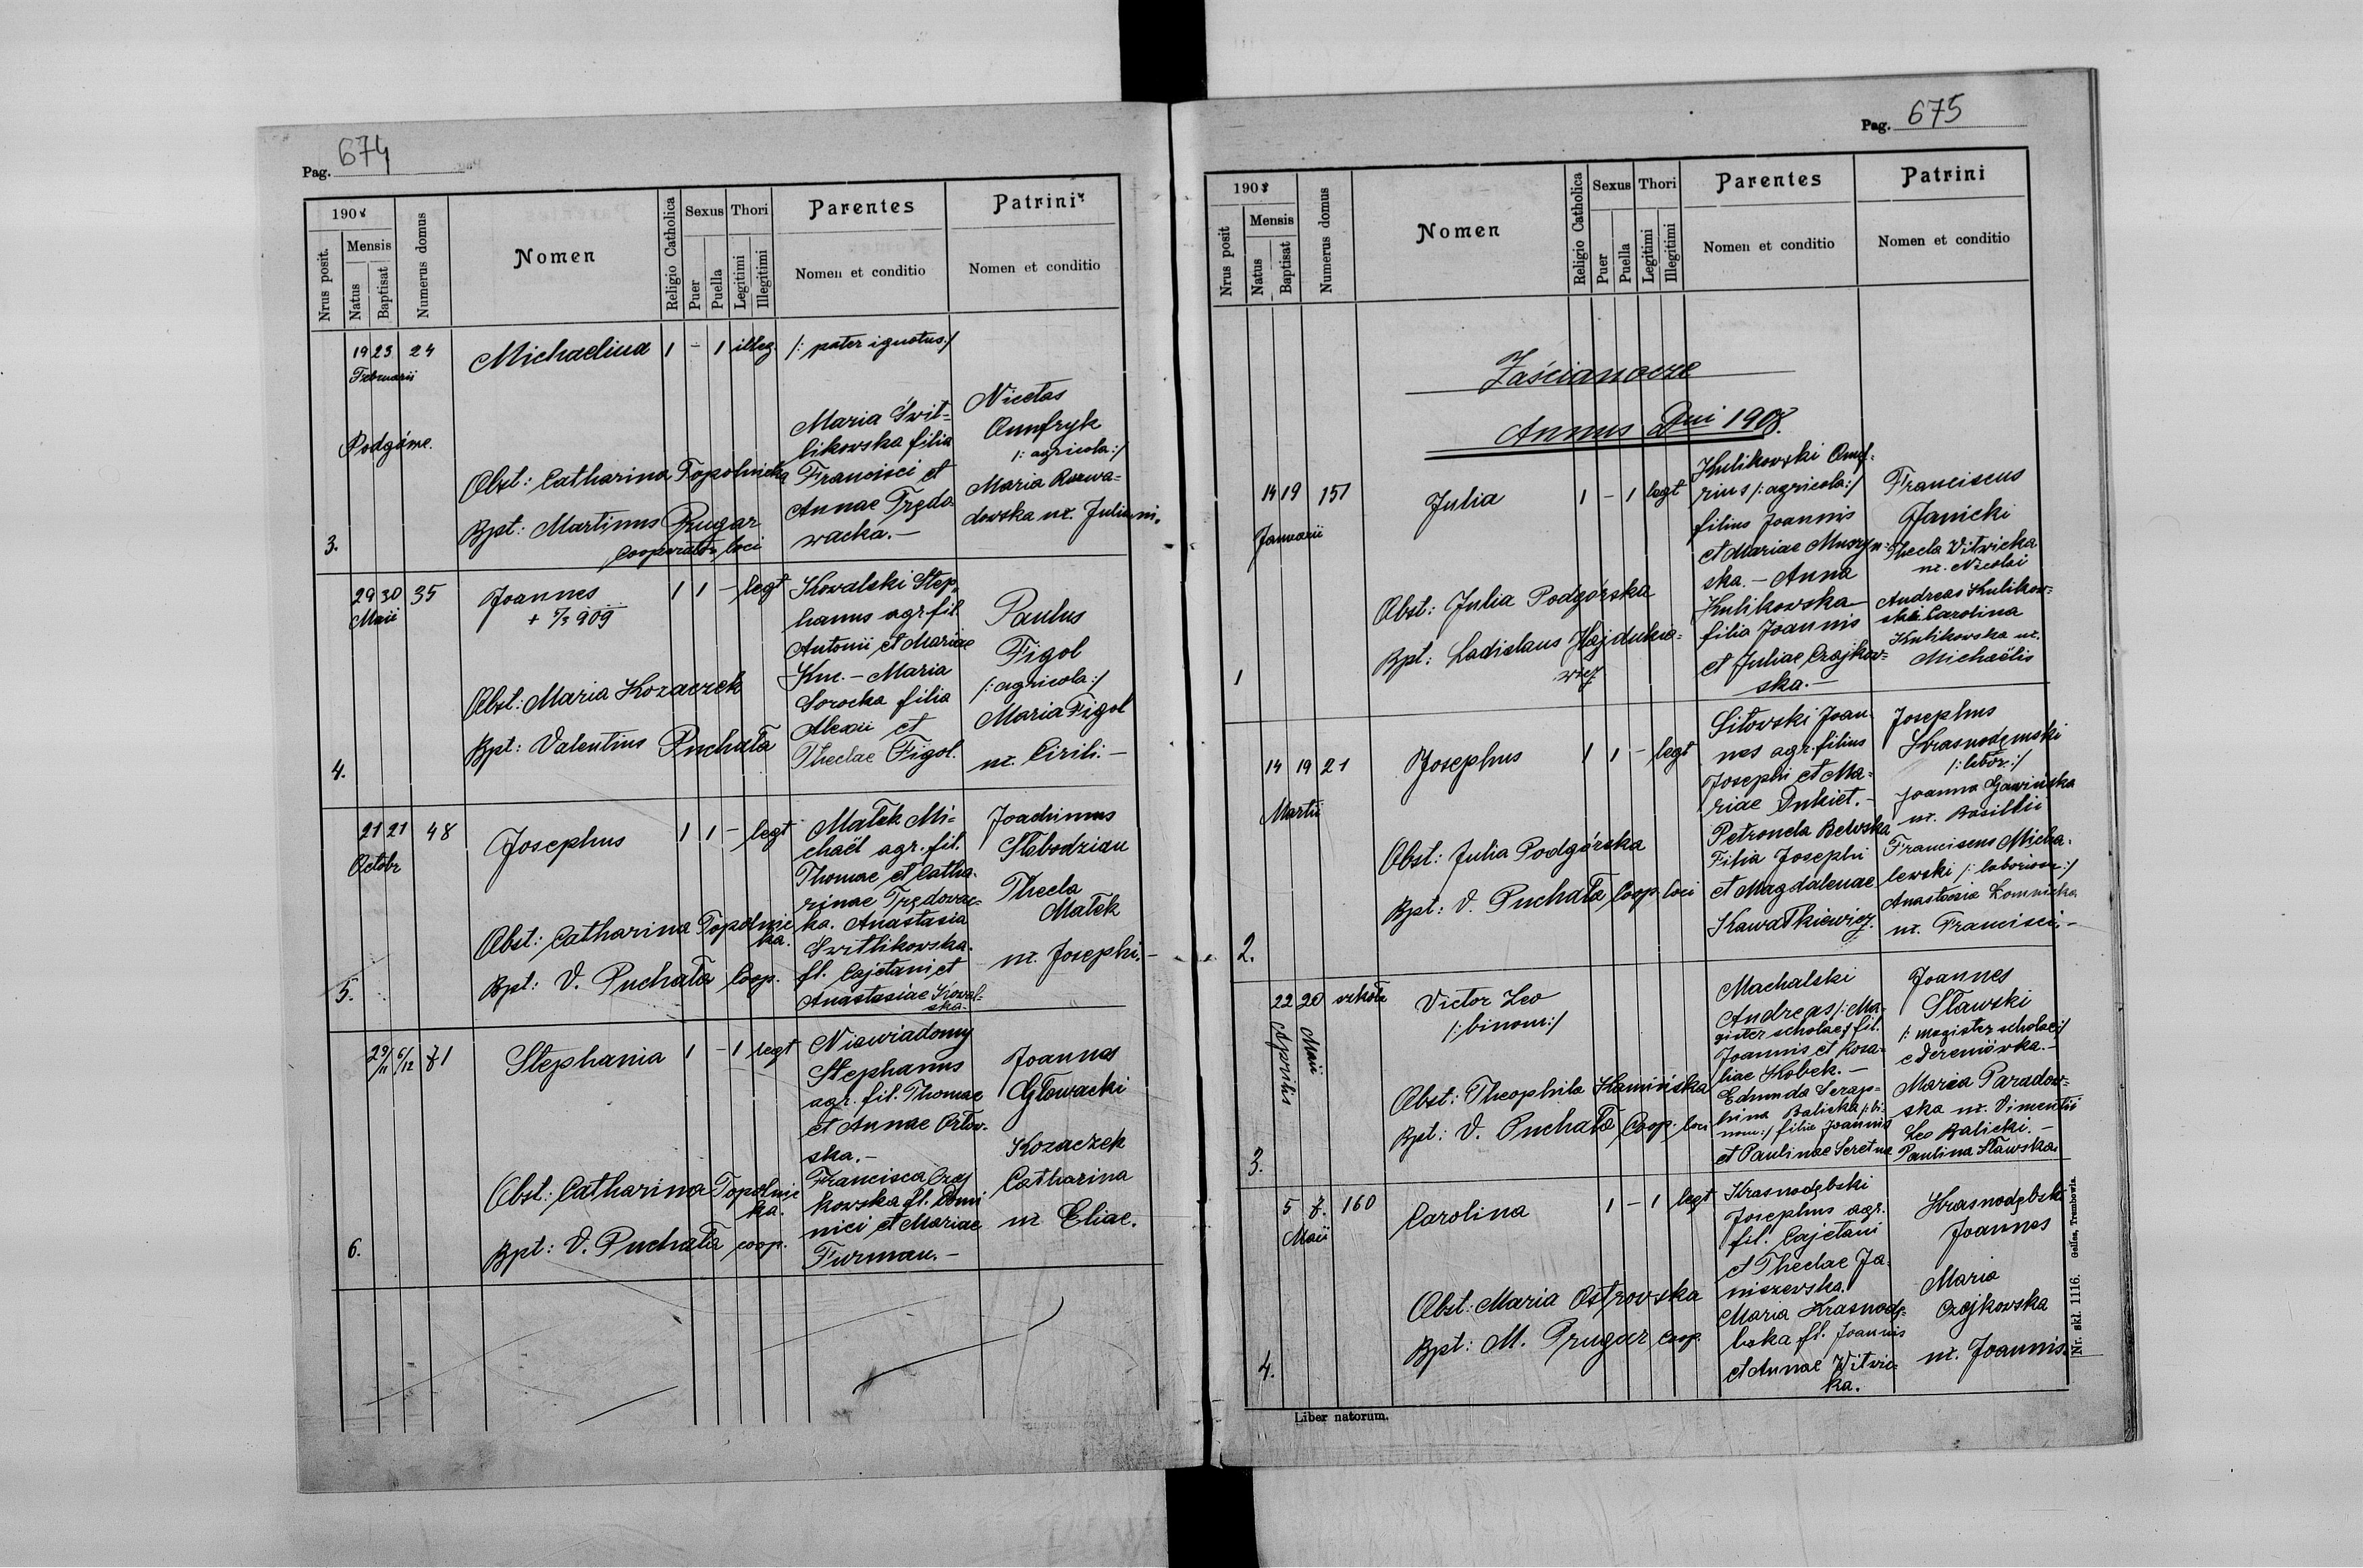 Pag. 674
1908
Nrus posit.
Mensis
Natus
Baptisat
Numerus domus
Nomen
Religio Catholica
Sexus
Puer
Puella
Thori
Legitimi
Illegitimi
Parentes
Nomen et conditio
Patrini
Nomen et conditio
3.
19 23 24
Februarii
Podgórne.
Michaelina 1 - 1 illeg.
Obst: Catharina Topolnicka
Bpt: Martinus Prugar
Cooperator loci
/: pater ignotus :/
Maria Świt=
likowska filia
Francisci et
Annae Trędo=
wacka.-
Nicetas
Onufryk
/: agricola :/
Maria Rozwa=
dowska ux. Juliani.
4.
29 30 35
Maii
Joannes 1 1 - legt
+ 7/3 909
Obst: Maria Kozaczek
Bpt: Valentius Puchała
Kowalski Step,
hanus agr. fil.
Antonii et Mariae
Kuc. - Maria
Sorocka filia
Alexii et
Theclae Figol.
Paulus
Figol
/: agricola :/
Maria Figol
ux. Cirili. -
5.
21 21 48
Octobr
Josephus 1 1 - legt
Obst: Catharina Topolnic
ka.
Bpt: V. Puchała Coop.
Małek Mi=
chaël agr. fil.
Thomae et Catha=
rinae Trędowac=
ka. Anastasia
Switlikowska.
fl. Cajetani et
Anastasiae Kowal=
ska.
Joachimus
Słobodzian
Thecla
Małek
ux. Josephi. -
6.
29/11 6/12 71
Stephania 1 - 1 legt
Obst: Catharina Topolnic
ka.
Bpt: V. Puchała coop.
Niewiadomy
Stephanus
agr. fil. Thomae
et Annae Ortow.
ska. -
Francisca Czaj
kowska fl. Domi
nici et Mariae
Furman. -
Joannes
Głowacki
Kozaczek
Catharina
ux Eliae.
Pag. 675
1908
Nrus posit
Mensis
Natus
Baptisat
Numerus domus
Nomen
Religio Catholica
Sexus
Puer
Puella
Thori
Legitimi
Illegitimi
Parentes
Nomen et conditio
Patrini
Nomen et conditio
Zaścianocze
Annus Dni 1908.
1
14 19 151
Januarii
Julia 1 - 1 legt
Obst: Julia Podgórska
Bpt: Ladislaus Hajdukie=
wicz
Kulikowski Onuf=
rius /: agricola :/
filius Joannis
et Mariae Muszyń=
ska. - Anna
Kulikowska
filia Joannis
et Juliae Czajkow=
ska. -
Franciscus
Janicki
Thecla Witwicka
ux. Nicolai
Andreas Kulikow=
ski Carolina
Kulikowska ux.
Michaëlis
2.
14 19 21
Martii
Josephus 1 1 - legt
Obst: Julia Podgórska
Bpt: V. Puchała Coop. loci
Sitowski Joan
nes agr. filius
Josephi et Ma=
riae Dukiet. -
Petronela Belwska
Filia Josephi
et Magdalenae
Kawałkiewicz.
Josephus
Krasnodęmski
/: labor. :/
Joanna Gawińska
ux. Basillii
Franciscus Micha=
lewski /: laborios :/
Anastasia Łomnicka
ux. Francisci. -
3.
22 20 szkoła
Aprilis
Maii
Victor Leo
/: binom :/
Obst: Theophila Kamińska
Bpt: V. Puchała Coop. loci
Machalski
Andreas /: Ma=
gister scholae :/ fil.
Joannis et Rosa=
liae Kobek. -
Edmunda Serap=
hina Balicka /: bi=
nom :/ filia Joannis
et Paulinae Seretna
Joannes
Sławski
/: magister scholae :/
e Dereniówka. -
Maria Paradow=
ska ux. Vincentii
Leo Balicki. -
Paulina Sławska.
4.
5 7. 160
Maii
Carolina 1 - 1 legt
Obst: Maria Ostrowska
Bpt: M. Prugar Coop.
Krasnodębski
Josephus agr.
fil. Cajetani
et Theclae Ja=
niszewska.
Maria Krasnodę=
bska fl. Joannis
et Annae Witwic=
ka.
Krasnodębski
Joannes
Maria
Czajkowska
ux. Joannis.
Liber natorum.
Nr. skl. 1116. Gelles, Trembowla.